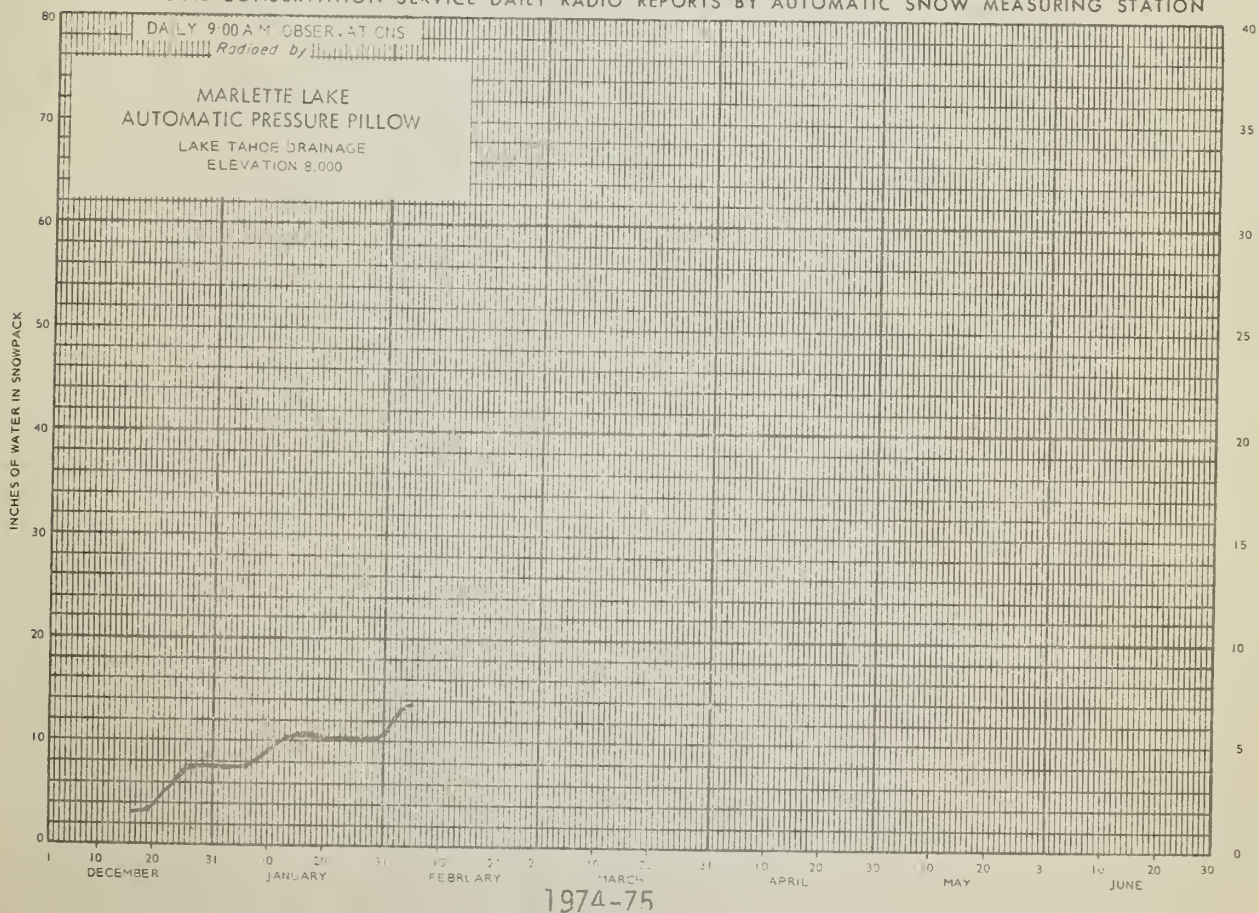 CONSERVATION SERVICE DAILY RADIO REPORTS BY AUTOMATIC SNOW MEASURING STATION
DAILY 9:00 AM OBSERVATIONS
Radioed by
MARLETTE LAKE
AUTOMATIC PRESSURE PILLOW
LAKE TAHOE DRAINAGE
ELEVATION 8,000
INCHES OF WATER IN SNOWPACK
80
70
60
50
40
30
20
10
0
40
35
30
25
20
15
10
5
0
1 10 20 31 10 20 31 10 31 10 20 30 10 20 3 10 20 30
DECEMBER JANUARY FEBRUARY MARCH APRIL MAY JUNE
1974-75